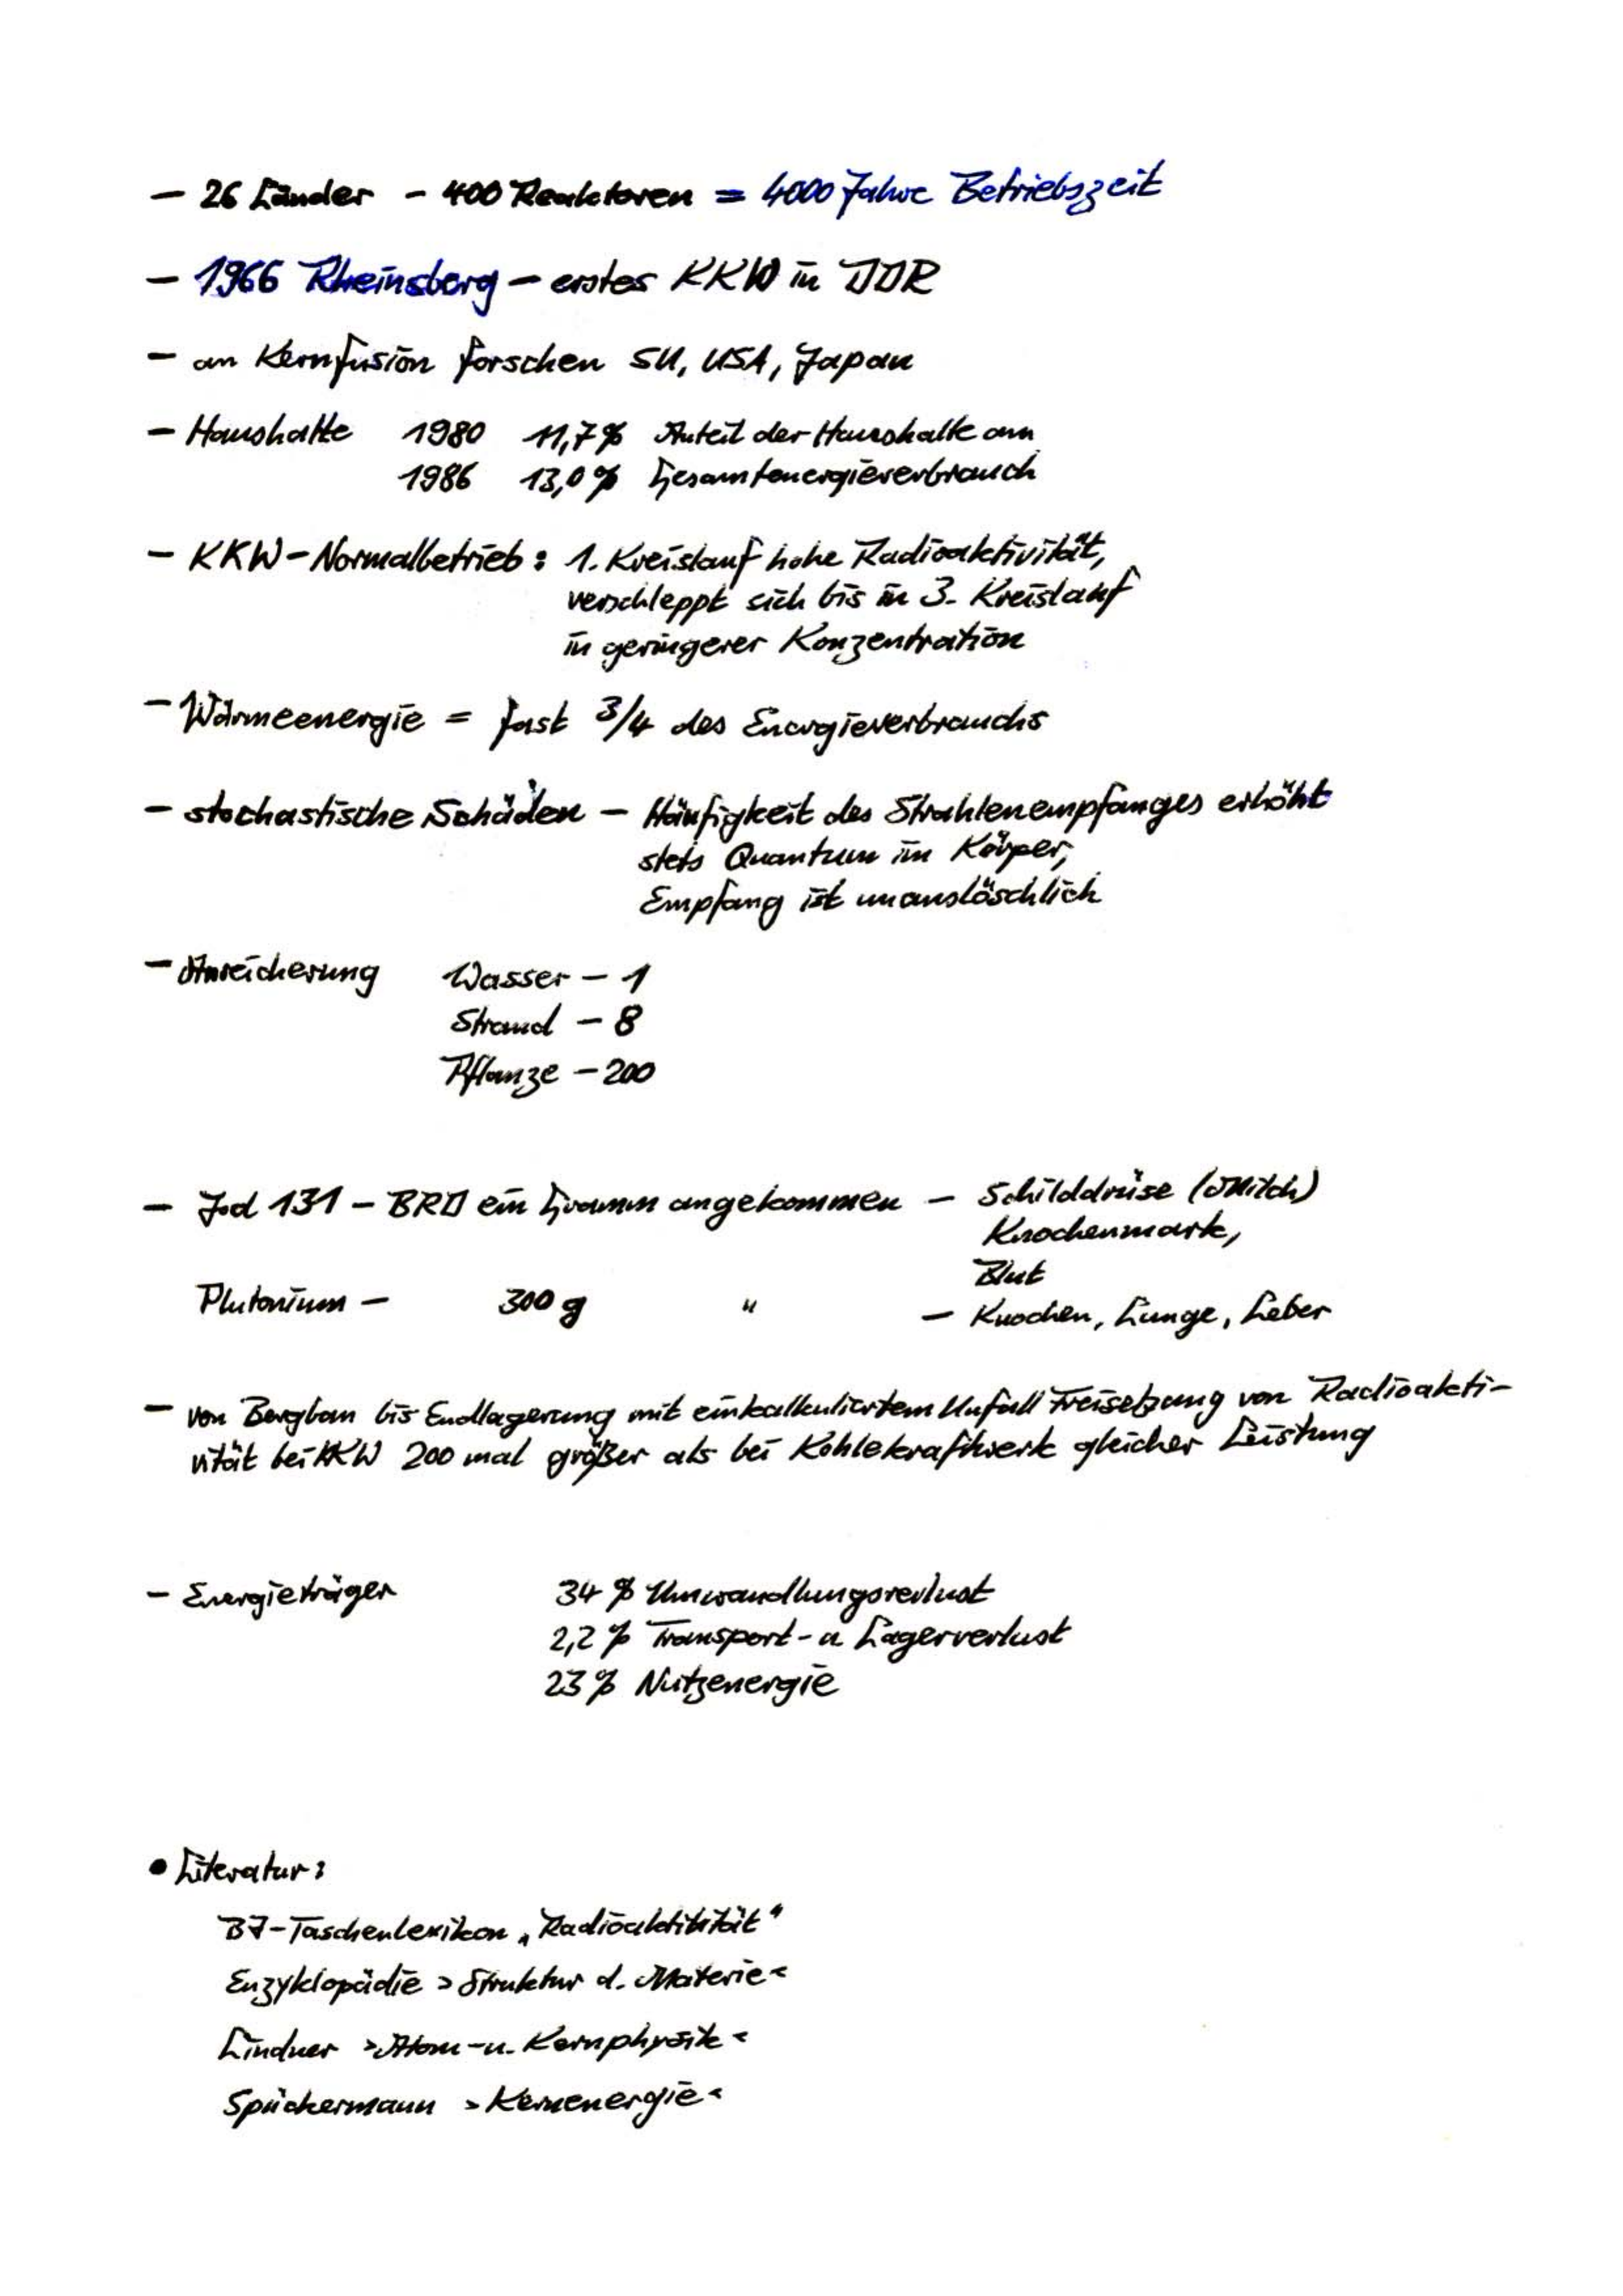 – 26 Länder – 400 Reaktoren = 4000 Jahre Betriebszeit
– 1966 Rheinsberg – erstes KKW in DDR
– an Kernfusion forschen SU, USA, Japan
– Haushalte 1980 11,7 % Anteil der Haushalte am
1986 13,0 % Gesamtenergieverbrauch
– KKW-Normalbetrieb: 1. Kreislauf hohe Radioaktivität,
verschleppt sich bis in 3. Kreislauf
in geringerer Konzentration
– Wärmeenergie = fast 3/4 des Energieverbrauchs
– stochastische Schäden – Häufigkeit des Strahlenempfanges erhöht
stets Quantum im Körper,
Empfang ist unauslöschlich
– Anreicherung Wasser – 1
Strand – 8
Pflanze – 200
– Jod 131 – BRD ein Gramm angekommen – Schilddrüse (Milch)
Knochenmark,
Blut
Plutonium – 300 g " – Knochen, Lunge, Leber
– von Bergbau bis Endlagerung mit einkalkuliertem Unfall Freisetzung von Radioakti-
vität bei KKW 200 mal größer als bei Kohlekraftwerk gleicher Leistung
– Energieträger 34 % Umwandlungsverlust
2,2 % Transport- u Lagerverlust
23 % Nutzenergie
• Literatur:
BI-Taschenlexikon „Radioaktivität"
Enzyklopädie >Struktur d. Materie<
Lindner >Atom- u. Kernphysik<
Spickermann >Kernenergie<